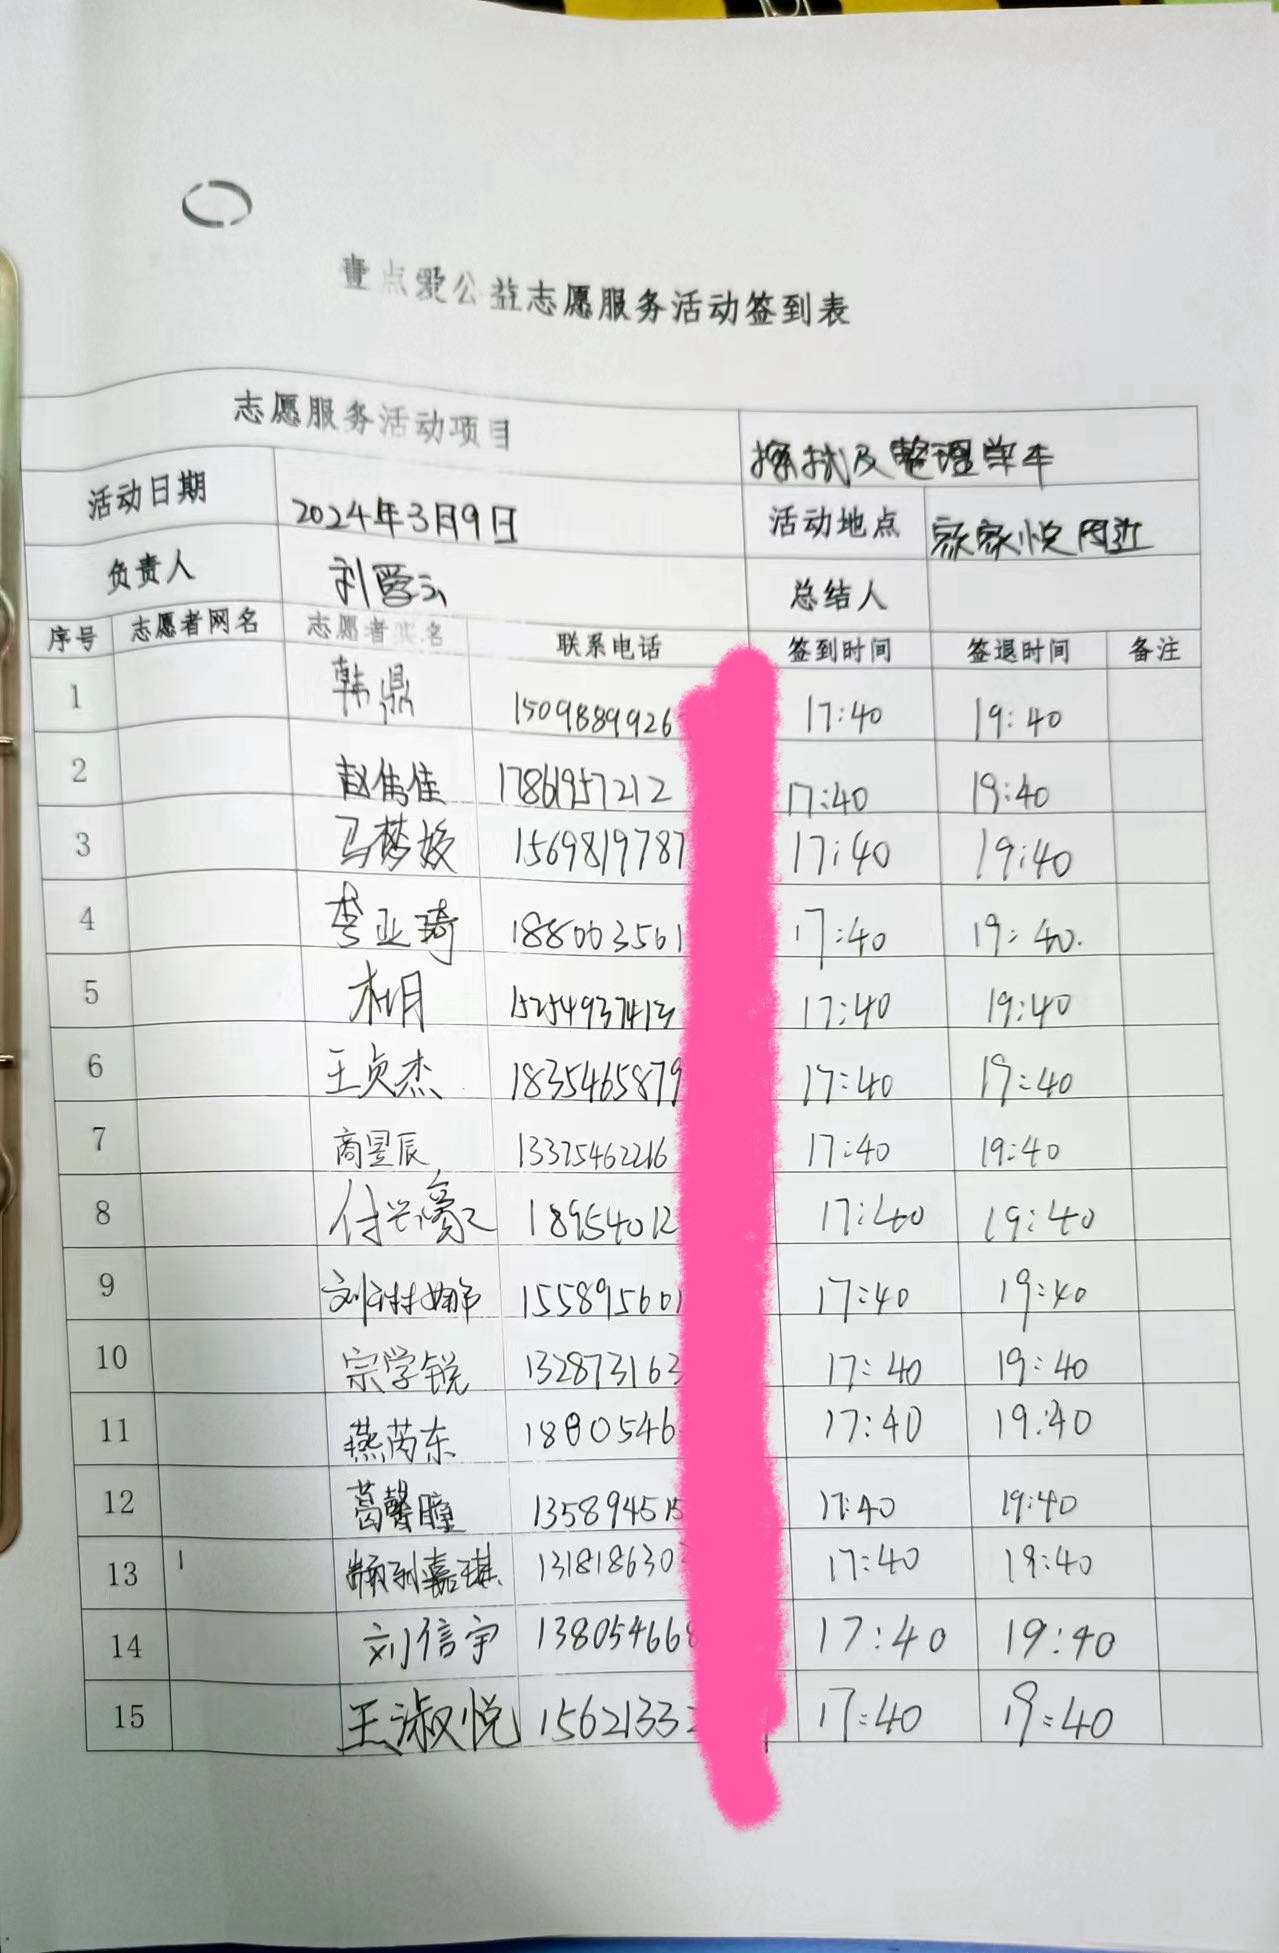 壹点爱公益志愿服务活动签到表
志愿服务活动项目 擦拭及整理单车
活动日期 2024年3月9日 活动地点 家家悦附近
负责人 总结人
序号 志愿者网名 志愿者实名 联系电话 签到时间 签退时间 备注
1 韩鼎 1509889926 17:40 19:40
2 赵伟佳 17861957212 17:40 19:40
3 马梦姣 1569819787 17:40 19:40
4 李亚琦 188003561 17:40 19:40.
5 15254937413 17:40 19:40
6 王贞杰 1835465879 17:40 19:40
7 商昱辰 13375462216 17:40 19:40
8 18954012 17:40 19:40
9 155895601 17:40 19:40
10 宗学锐 132873163 17:40 19:40
11 燕芮东 1880546 17:40 19:40
12 葛馨瞳 135894515 17:40 19:40
13 131818630 17:40 19:40
14 刘信宇 138054668 17:40 19:40
15 王淑悦 15621332 17:40 19:40